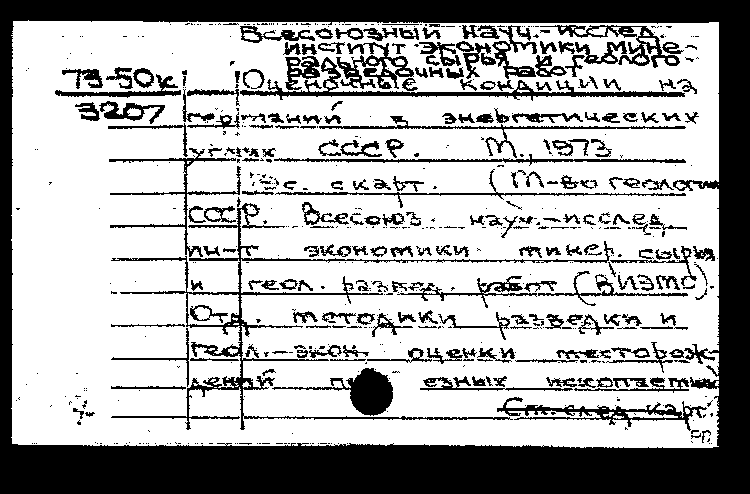 Всесоюзный науч.-исслед.
институт экономики мине-
рального сырья и геолого-
разведочных работ
73-50к Оценочные кондиции на
3207 германий в энергетических
углях СССР. М., 1973.
с. с карт. (М-во геологии
СССР. Всесоюз. науч.-исслед.
ин-т экономики минер. сырья
и геол. развед. работ (ВИЭМС).
Отд. методики разведки и
геол.-экон. оценки месторож-
дений езных ископаемых
См. след. карт.
РП